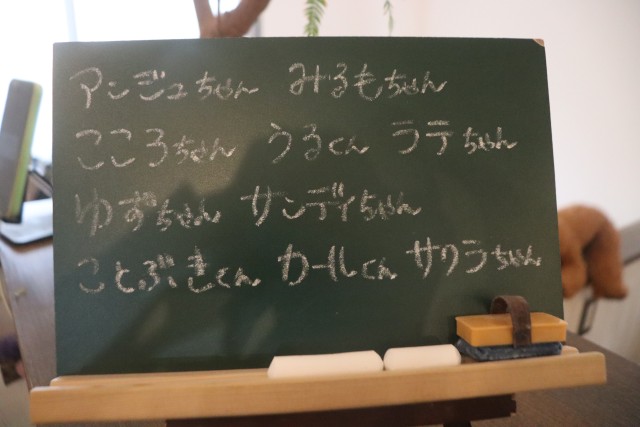 アンジュちゃん みるもちゃん
こころちゃん うるくん ラテちゃん
ゆずちゃん サンディちゃん
ことぶきくん カールくん サクラちゃん